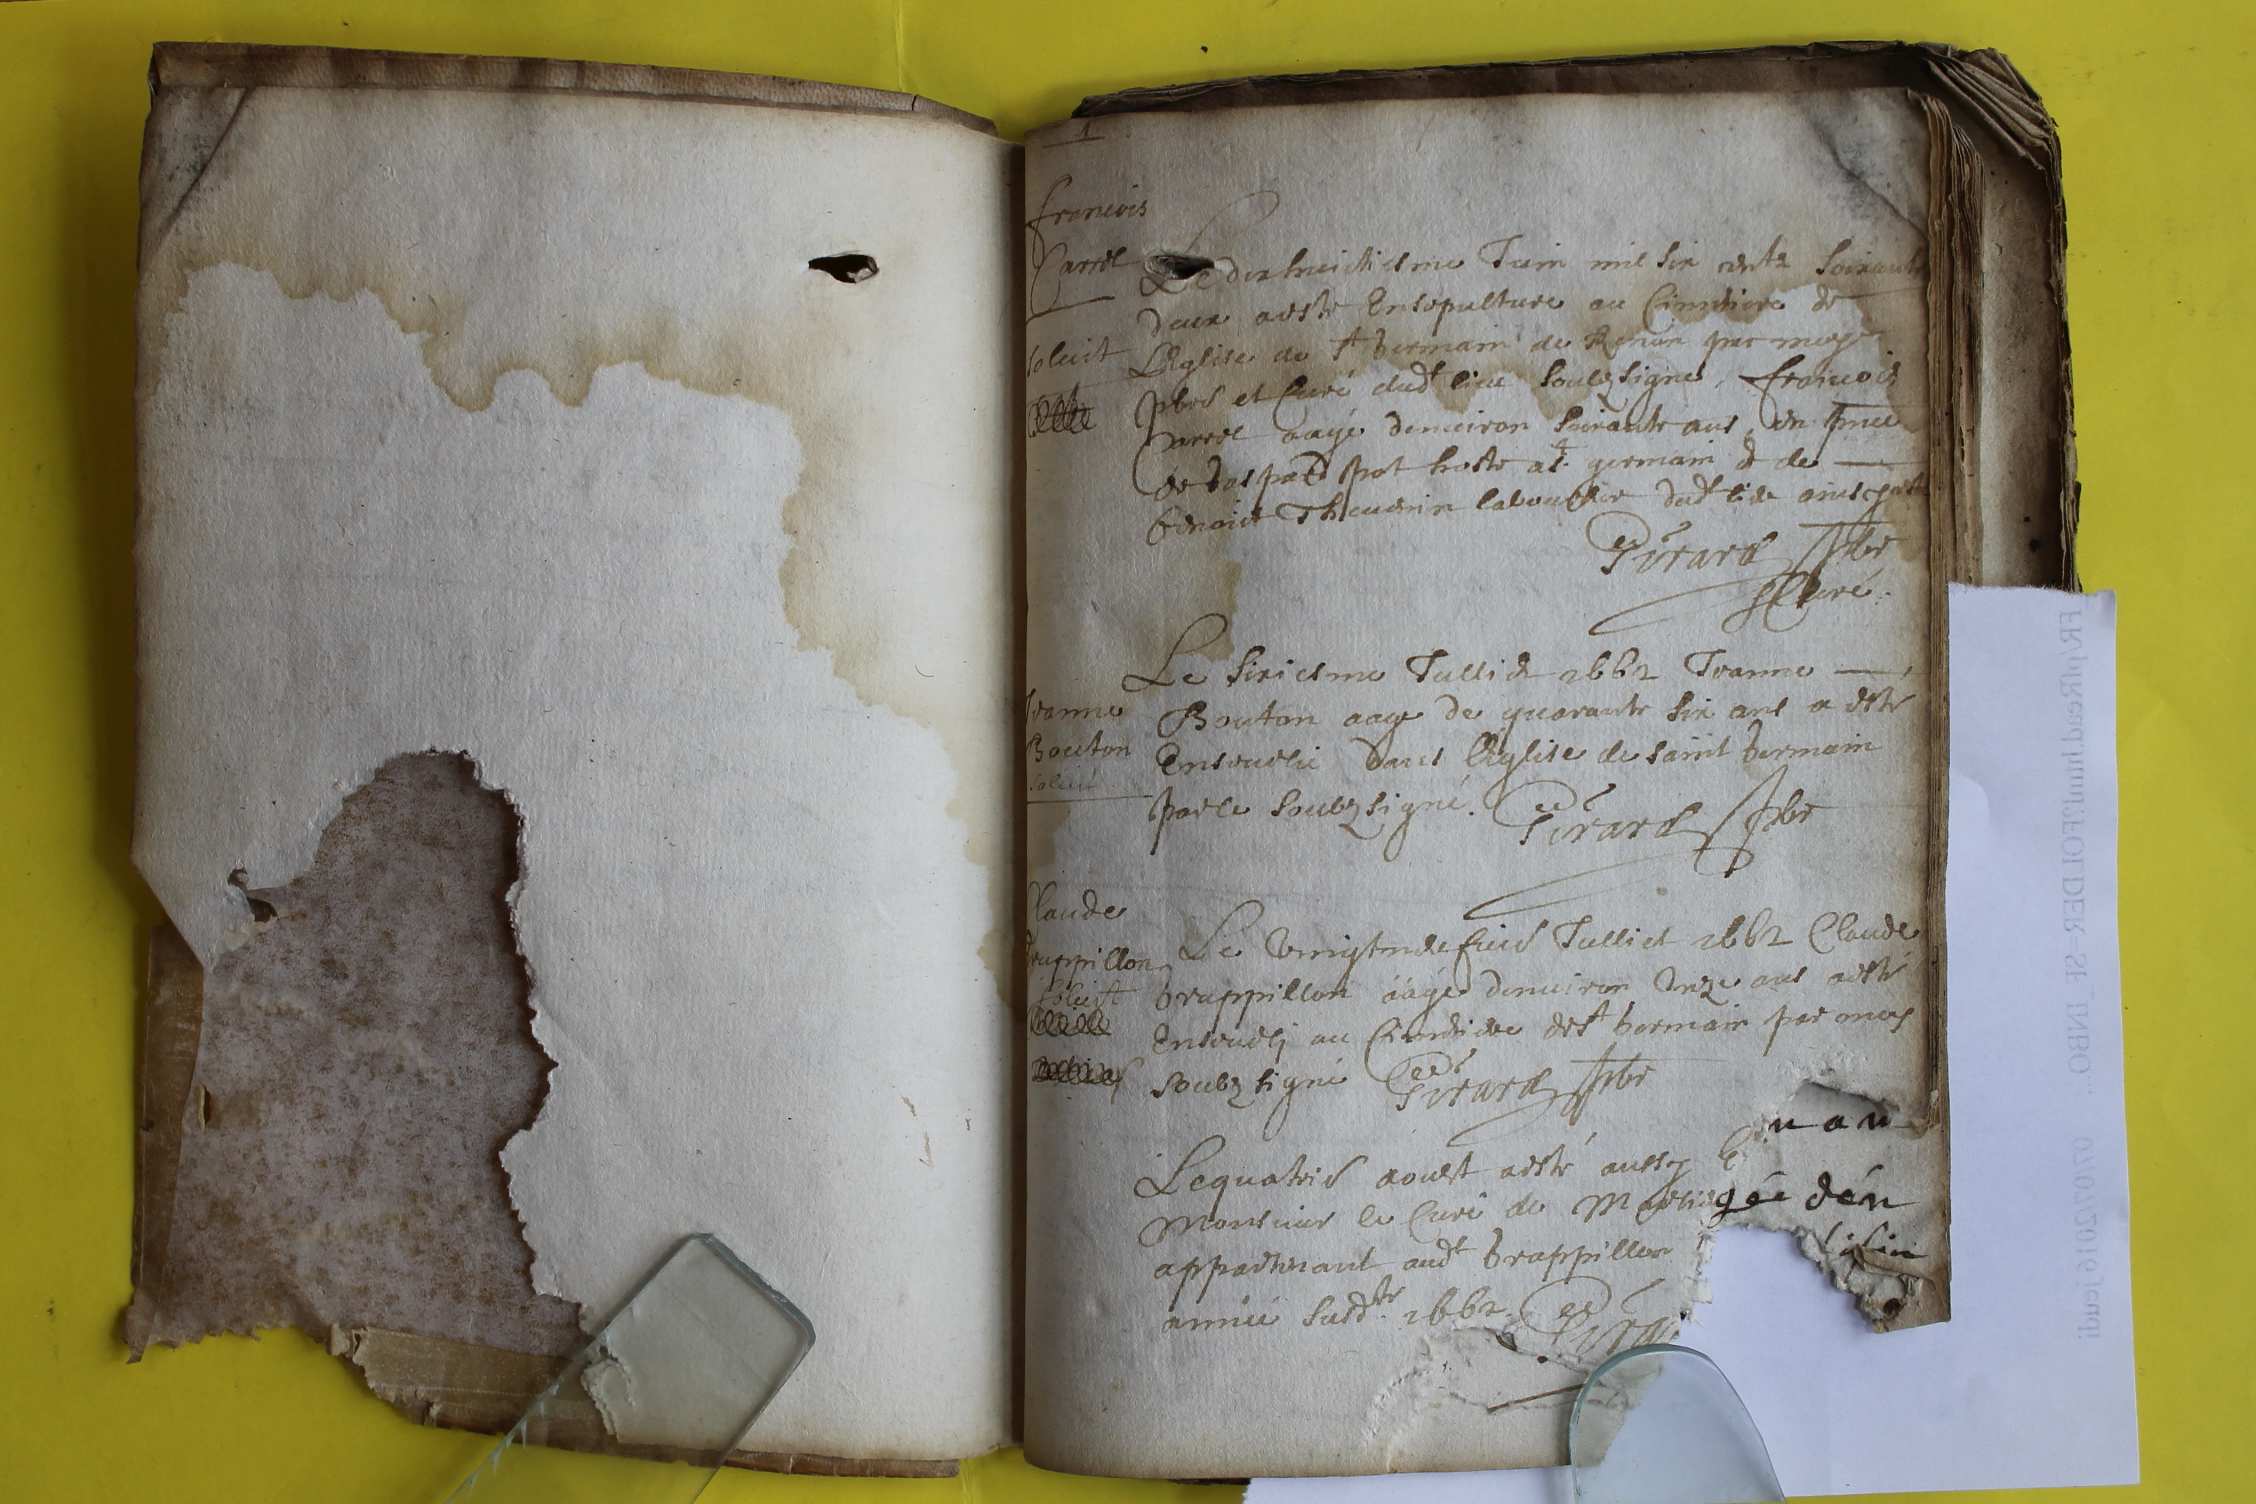 1
francois
Carrel
soluit
Le dixhuictiesme Juin mil six cents soixante
deux a esté Ensepulturé au Cimetiere de
L'Eglise de St Germain de Renon par moy
pbre et Curé dudt lieu soubzsigné, francois
Carrel aagé denuiron soixante ans, en pnce
de Gaspard pot hoste a St germain & de
benoict Theuenin laboureur dudt lieu
Girard pbre
Curé
Jeanne
Bouton
soluit
Le sixiesme Julliet 1662 Jeanne
Bouton aage de quarante six ans a esté
Enseuelie dans l'Eglise de saint Germain
par le soubzsigné. Girard pbre
Claude
Grappillon
soluit
Le vingt Julliet 1662 Claude
Grappillon aagé denuiron Unze ans a esté
Enseueli au Cimetiere de St Germain par moy
soubzsigné Girard pbre
Le quatrie aoust a esté aussy
Monsieur le Curé de
appartenant audt Grappillon
année susdte 1662. Girar
nan
gée dén